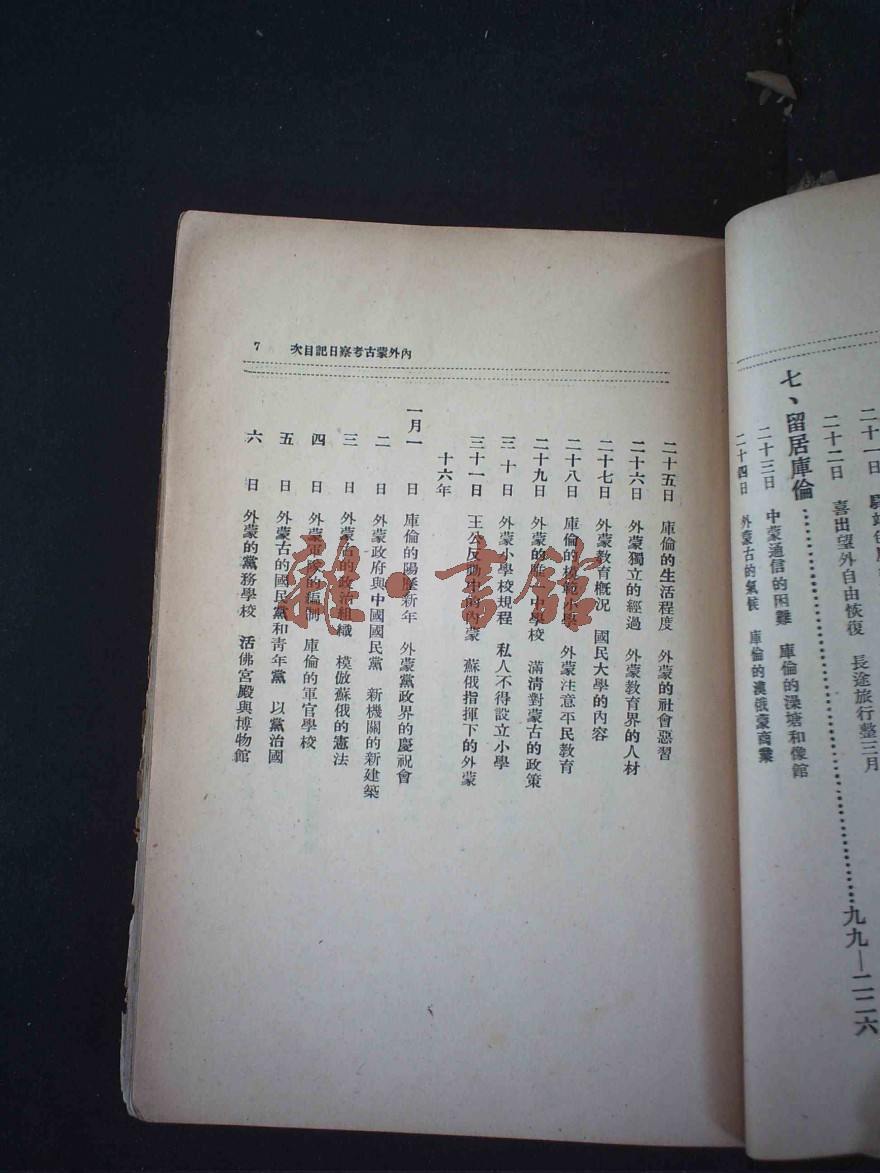 二十一日
二十二日　喜出望外自由恢復　長途旅行整三月
七、留居庫倫……九九—二二六
二十三日　中蒙通信的困難　庫倫的澡塘和像館
二十四日　外蒙古的氣候　庫倫的漢俄蒙商業
內外蒙古考察日記目次　7
二十五日　庫倫的生活程度　外蒙的社會惡習
二十六日　外蒙獨立的經過　外蒙教育界的人材
二十七日　外蒙教育概況　國民大學的內容
二十八日　庫倫的模範小學　外蒙注意平民教育
二十九日　外蒙的唯一中學校　滿清對蒙古的政策
三十日　外蒙小學校規程　私人不得設立小學
三十一日　王公反動中的內蒙　蘇俄指揮下的外蒙
十六年
一月一日　庫倫的陽歷新年　外蒙黨政界的慶祝會
二日　外蒙政府與中國國民黨　新機關的新建築
三日　外蒙古的政治組織　模倣蘇俄的憲法
四日　外蒙軍隊的編制　庫倫的軍官學校
五日　外蒙古的國民黨和青年黨　以黨治國
六日　外蒙的黨務學校　活佛宮殿與博物館
雜·書館